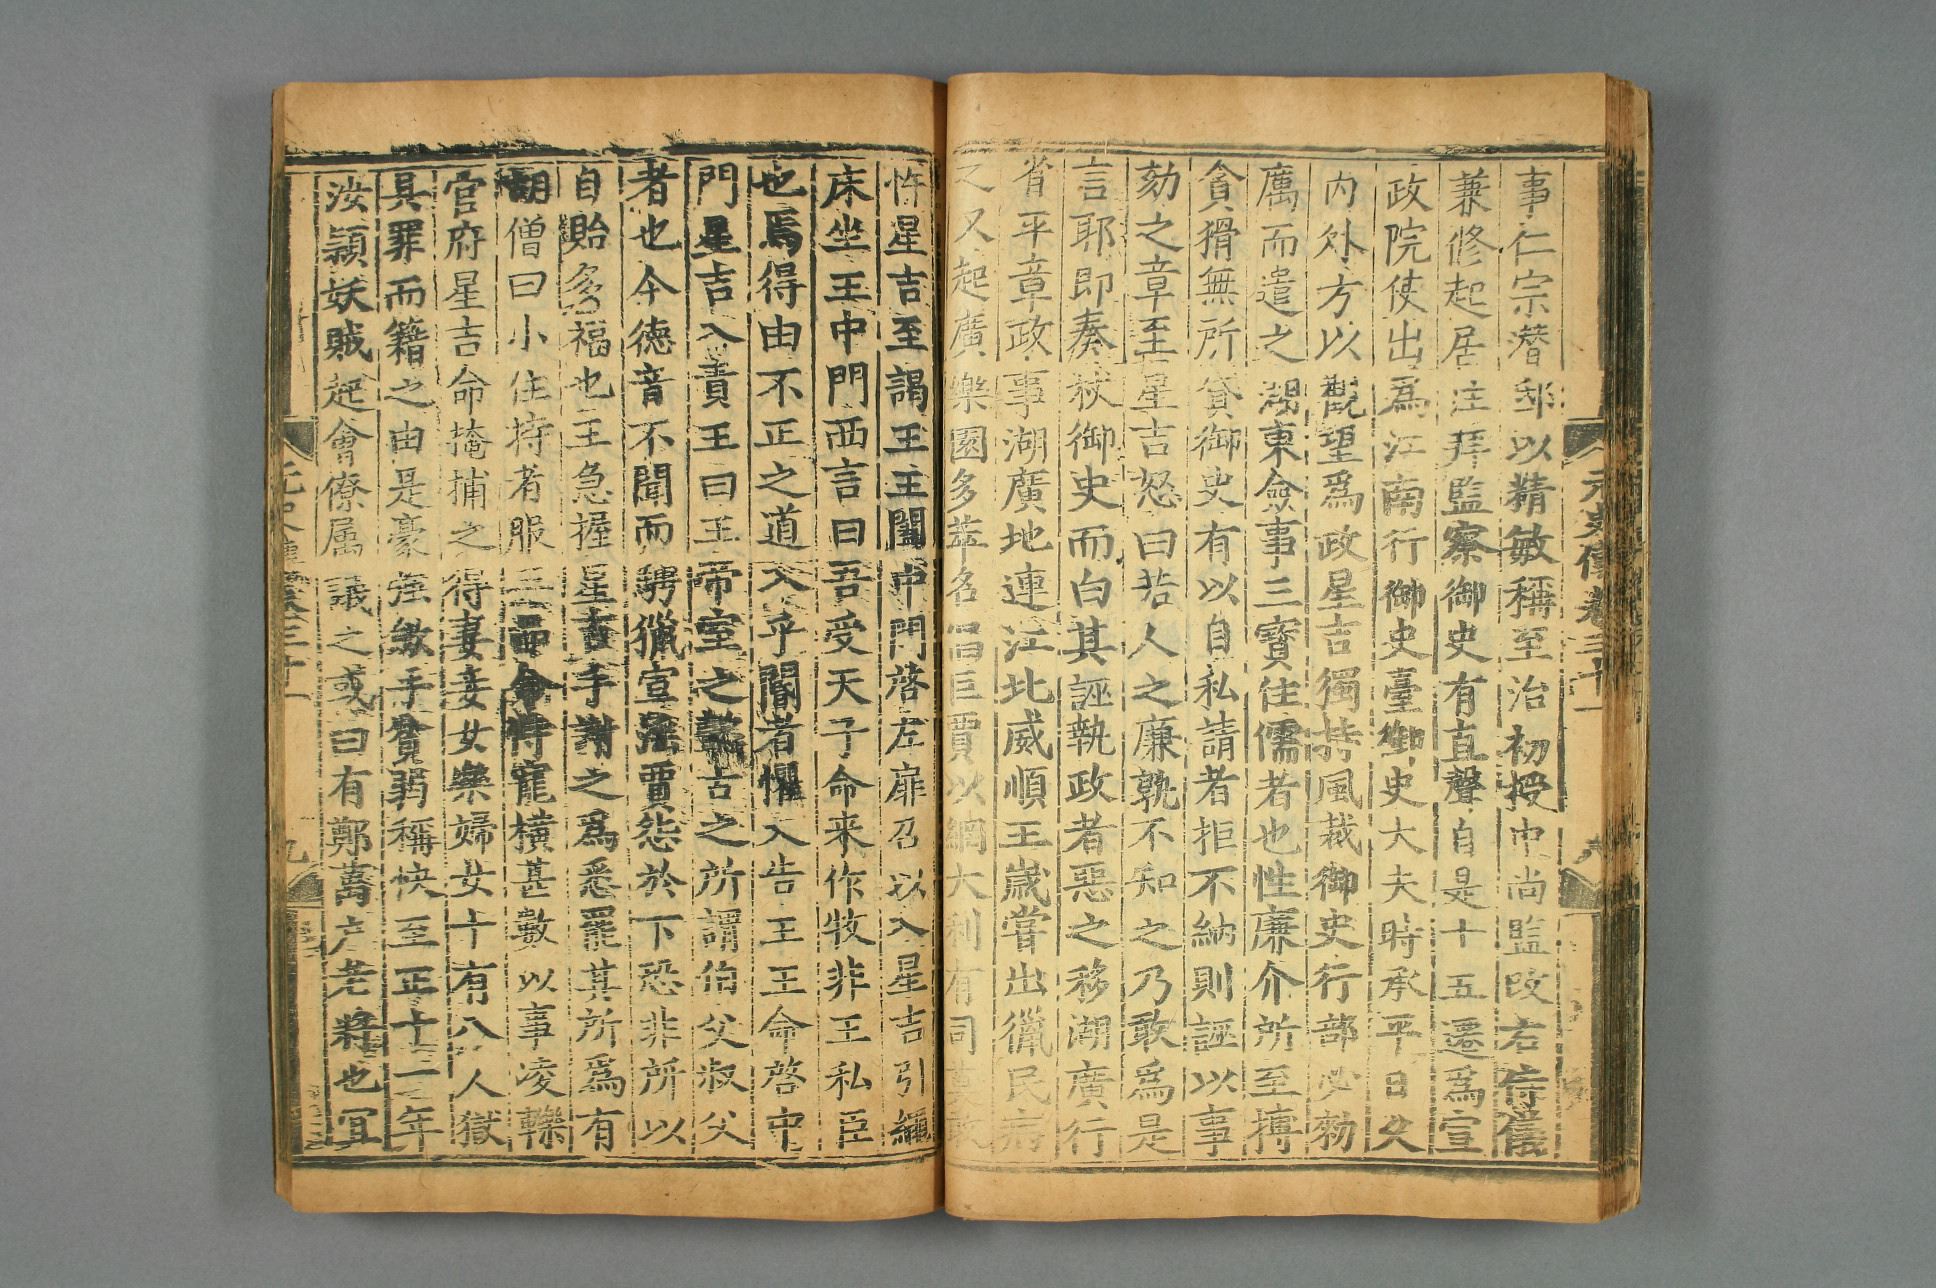 事仁宗潛邸以精敏稱至治初授中尚監改右侍儀
兼修起居注拜監察御史有直聲自是十五遷爲宣
政院使出爲江南行御史臺御史大夫時承平日久
内外方以觀望爲政星吉獨持風裁御史行部必勑
厲而遣之湖東僉事三寳住儒者也性廉介所至搏
貪猾無所貸御史有以自私請者拒不納則誣以事
劾之章至星吉怒曰若人之廉孰不知之乃敢爲是
言耶即奏杖御史而白其誣執政者惡之移湖廣行
省平章政事湖廣地連江北威順王歲嘗出獵民病
之又起廣樂園多萃名倡巨賈以網大利有司莫敢
忤星吉至謁王王闔中門啓左扉召以入星吉引繩
床坐王中門西言曰吾受天子命来作牧非王私臣
也焉得由不正之道入乎閽者懼入告王王命啓中
門星吉入責王曰王帝室之懿古之所謂伯父叔父
者也今德音不聞而騁獵宣淫賈怨於下恐非所以
自貽多福也王急握星吉手謝之爲悉罷其所爲有
胡僧曰小住持者服三品命恃寵橫甚數以事凌轢
官府星吉命掩捕之得妻妾女樂婦女十有八人獄
具罪而籍之由是豪强斂手貧弱稱快至正十一年
汝潁妖賊起會僚属議之或曰有鄭萬户老將也宜
元史傳卷三十一
元史傳卷三十一
九